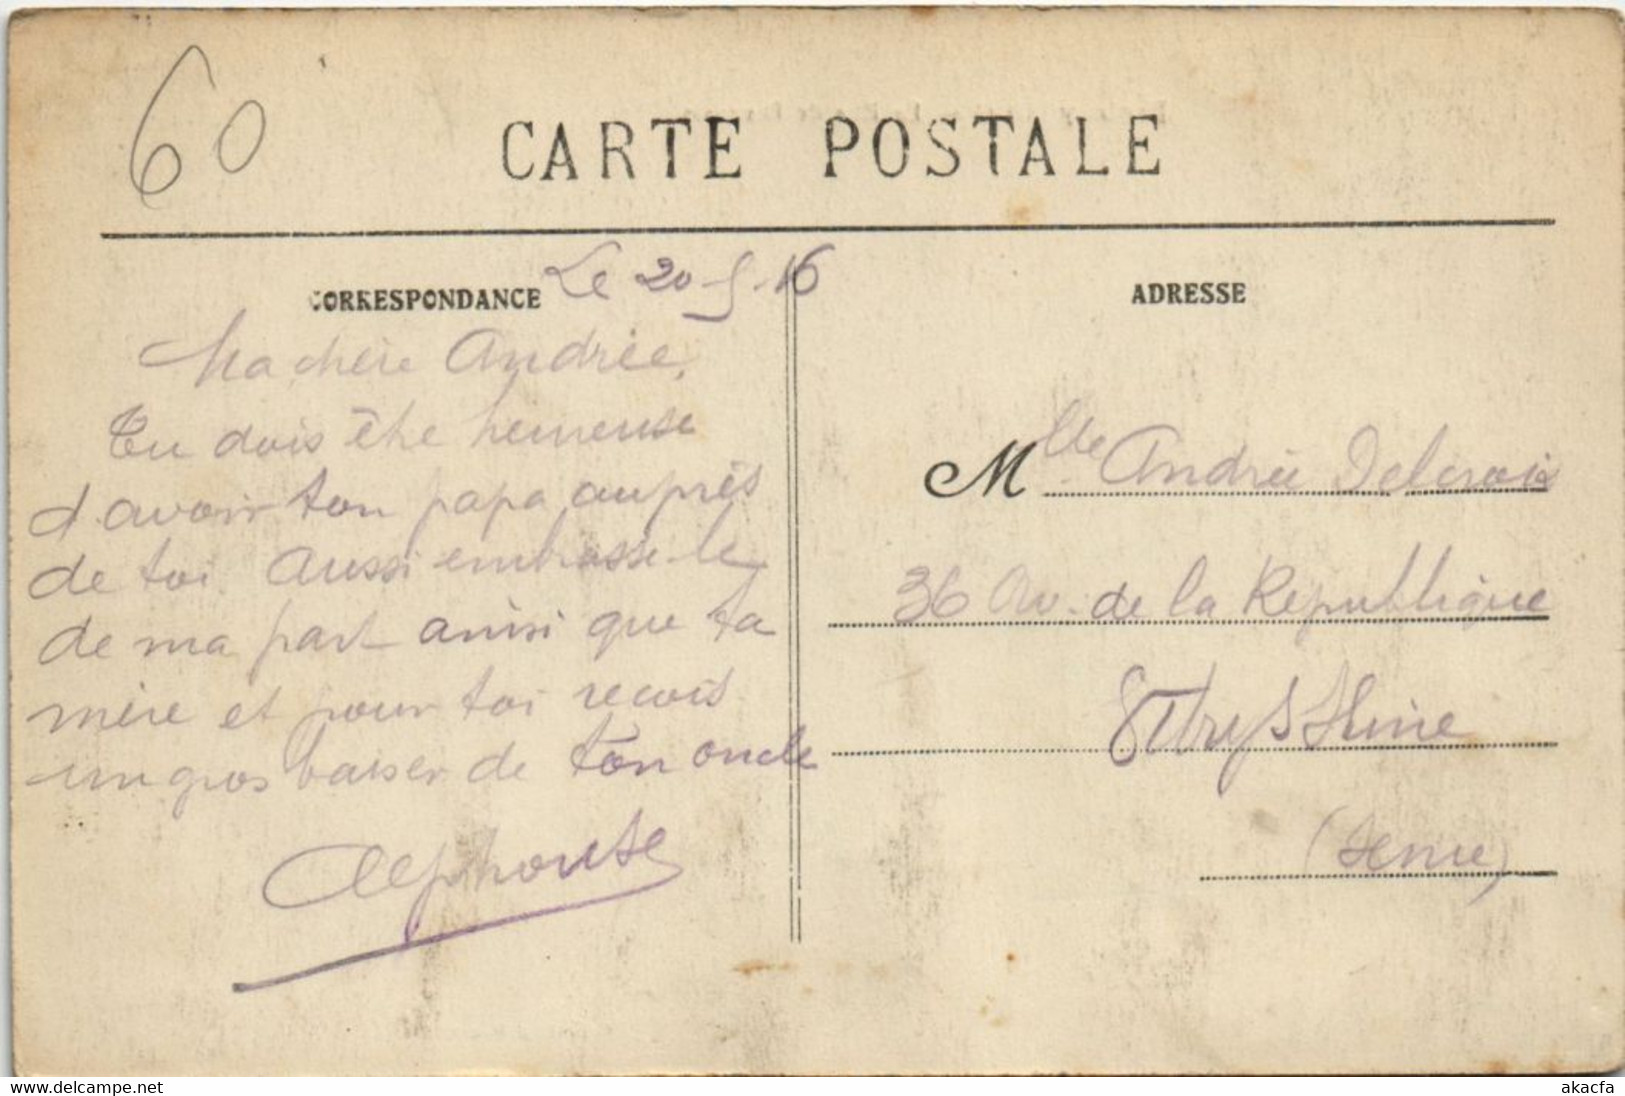 60
CARTE POSTALE
CORRESPONDANCE
Le 20-5-16
Ma chère Andrée,
Tu dois être heureuse
d'avoir ton papa auprès
de toi. Aussi embrasse-le
de ma part ainsi que ta
mère et pour toi recois
un gros baiser de ton oncle
Alphonse
ADRESSE
Mlle Andrée Delcroix
36 Av. de la République
(Seine)
delcampe.net
akacfa